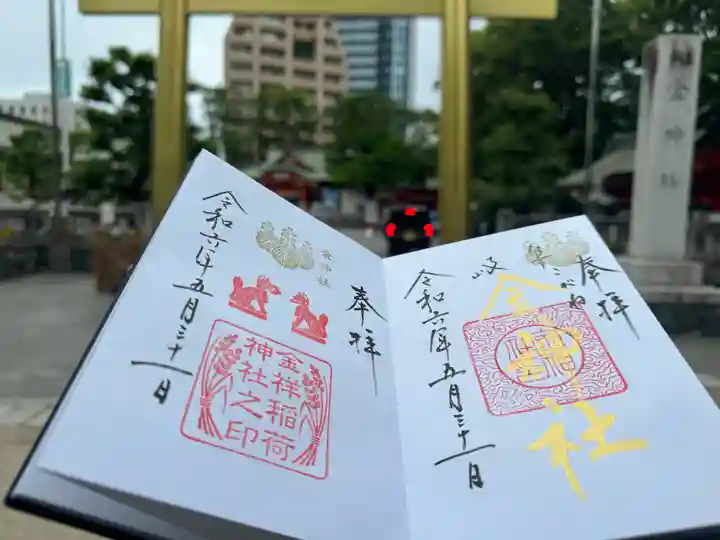 奉拝
金祥稲荷
神社之印
令和六年五月三十一日
奉拝
こがね
金神社
令和六年五月三十一日
金神社